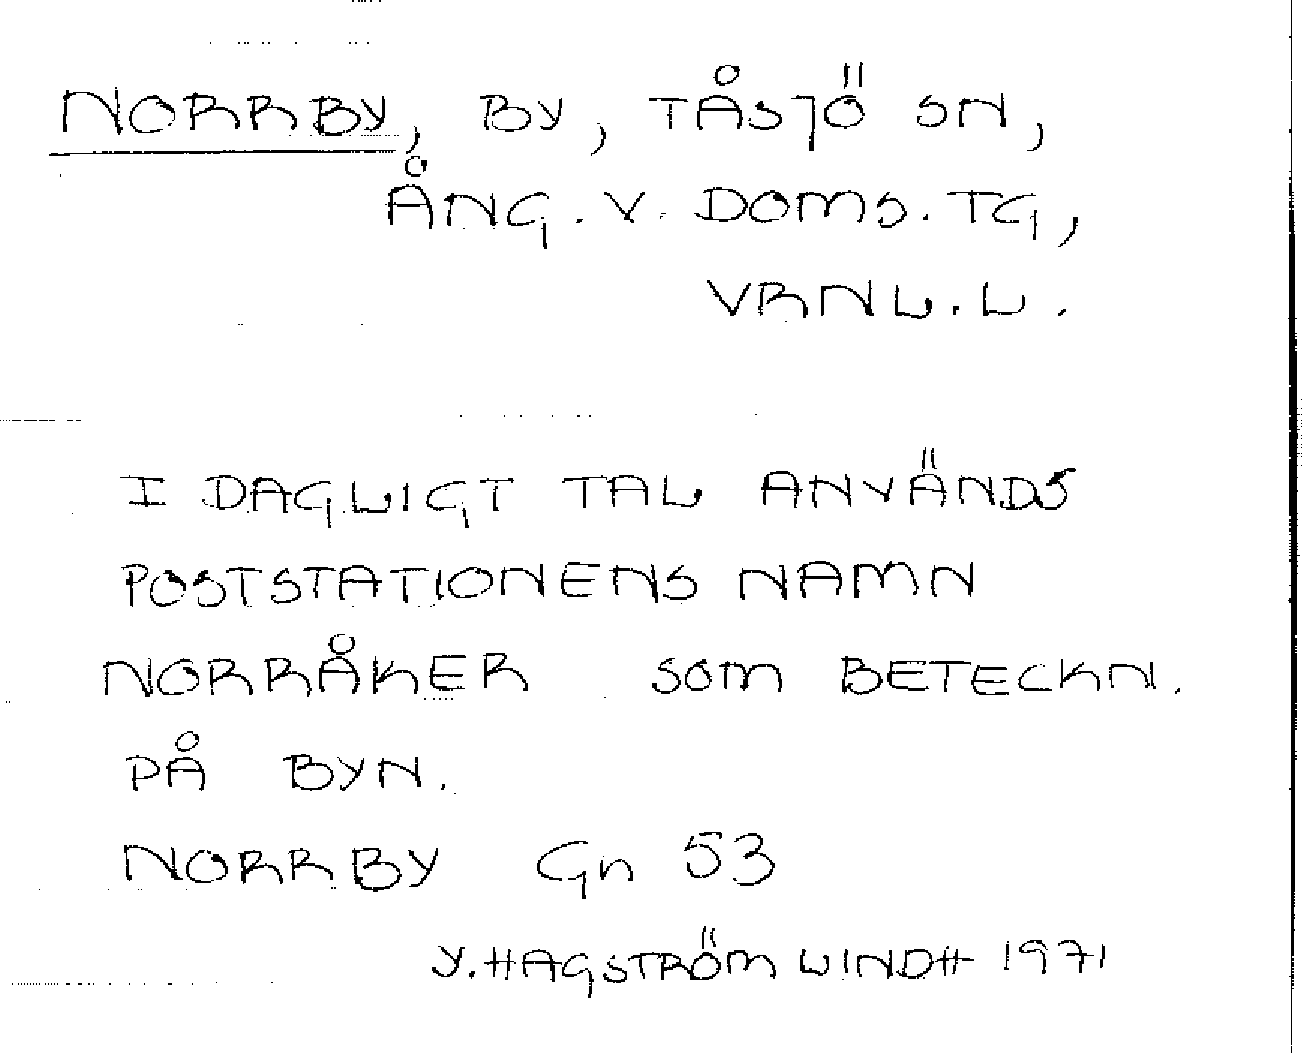 NORRBY, BY, TÅSJÖ SN,
ÅNG. V. DOMS. TG,
VRNL. L.
I DAGLIGT TAL ANVÄNDS
POSTSTATIONENS NAMN
NORRÅKER SOM BETECKN.
PÅ BYN.
NORRBY Gn 53
Y. HAGSTRÖM LINDH 1971